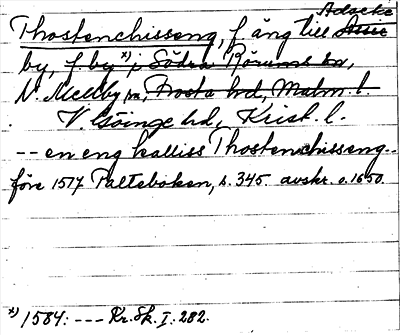 Adseke
Thostenchisseng, f. äng till
by, f. by *) i Södra Rörums sn,
N. Mellby sn, Frosta hrd, Malm. l.
V. Göinge hrd, Krist. l.
-- en eng kalliss Thostenchisseng --
före 1517 Palteboken, s. 345. avskr. o. 1650.
*) 1584: --- Kr. Sk. I: 282.